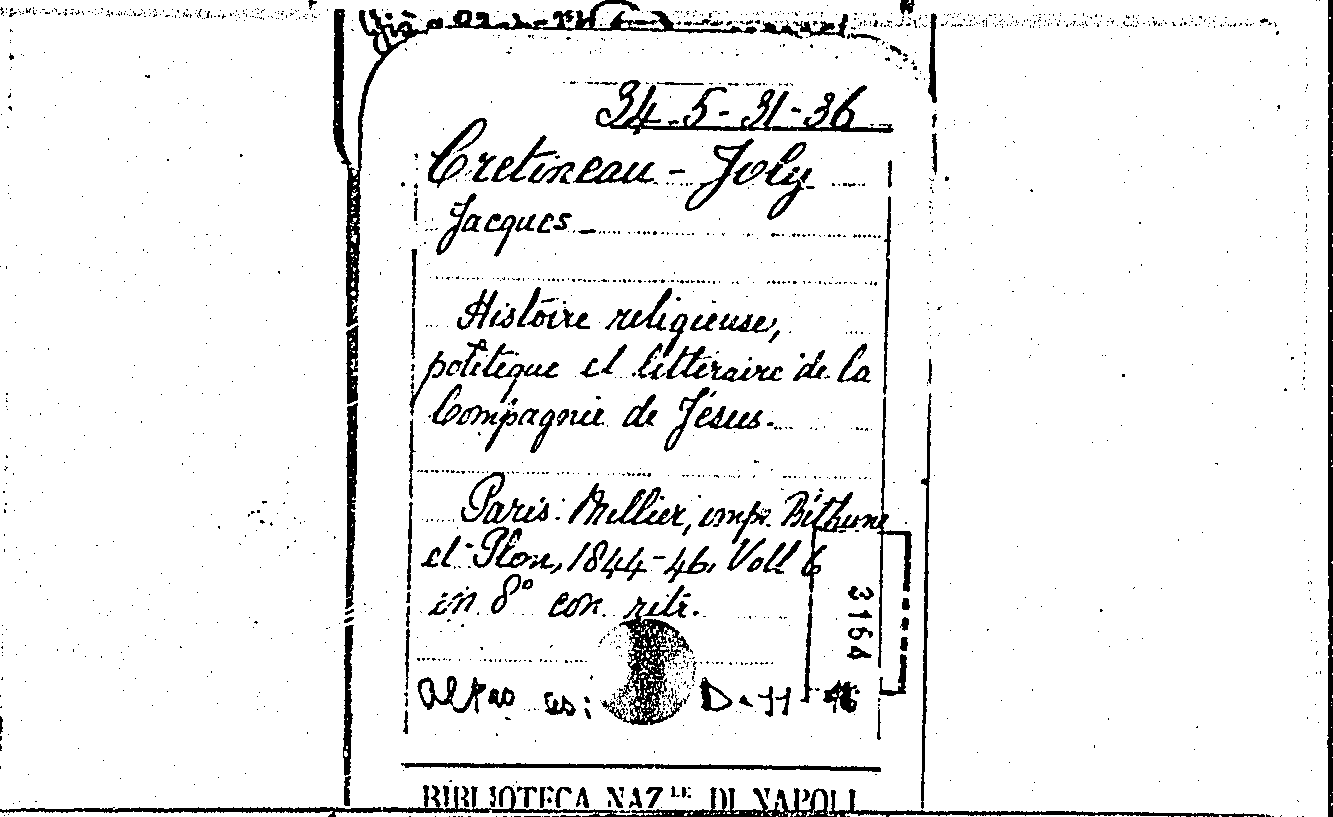 34-5-31-36
Cretineau - Joly
Jacques -
Histoire religieuse,
politique et litteraire de la
Compagnie de Jésus.
Paris: Mellier, impr. Béthune
et Plon, 1844-46, Voll 6
in 8° con ritr.
altro es:
3164
BIBLIOTECA NAZ.LE DI NAPOLI